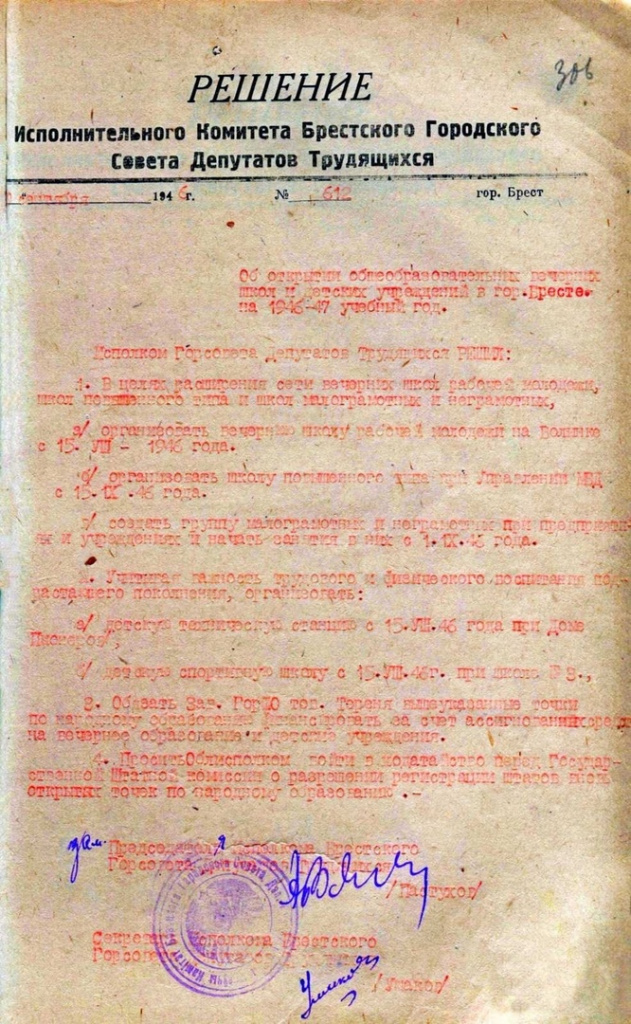 306
РЕШЕНИЕ
Исполнительного Комитета Брестского Городского
Совета Депутатов Трудящихся
1946 г. № 612 гор. Брест
Об открытии общеобразовательных вечерних
школ и детских учреждений в гор.Бресте
на 1946-47 учебный год.
Исполком Горсовета Депутатов Трудящихся РЕШИЛ:
1. В целях расширения сети вечерних школ рабочей молодежи,
школ повышенного типа и школ малограмотных и неграмотных,
а/ организовать вечернюю школу рабочей молодежи на Волынке
с 15. VIII - 1946 года.
б/ организовать школу повышенного типа при Управлении МВД
с 15.IX .46 года.
в/ создать группу малограмотных и неграмотных при предприяти-
ях и учреждениях и начать занятия в них с 1.IX.46 года.
2. Учитывая важность трудового и физического воспитания под-
растающего поколения, организовать:
а/ детскую техническую станцию с 15.VIII.46 года при Доме
Пионеров,
б/ детскую спортивную школу с 15.VIII.46г. при школе № 3.,
3. Обязать Зав. ГорОНО тов. Тереня вышеуказанные точки
по народному образованию финансировать за счет ассигнований
на вечернее образование и детские учреждения.
4. Просить Облисполком войти в ходатайство перед Государ-
ственной Штатной комиссии о разрешении регистрации штатов
открытых точек по народному образованию .-
Зам. Председателя Исполкома Брестского
Горсовета
/Пастухов/
Секретарь Исполкома Брестского
Горсовета
/Ушаков/